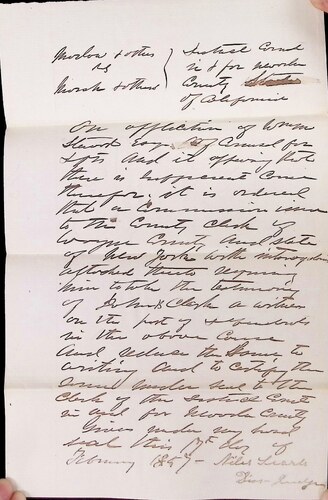 & others } District Court
vs } in & for
& others } County State
of California
On application of Wm
Esqr of Counsel for
and it appearing that
there is sufficient Cause
therefor. it is ordered
that a Commission issue
to the County Clerk of
Wayne County and State
of New York with interrogatories
attached thereto requiring
him to take the testimony
of John Clark a witness
on the part of
in the above Cause
and reduce the Same to
writing and to certify the
same under seal to the
Clerk of the District Court
in and for County
Given under my hand
seal this day of
February 1857 - Niles Searls
Dist Judge